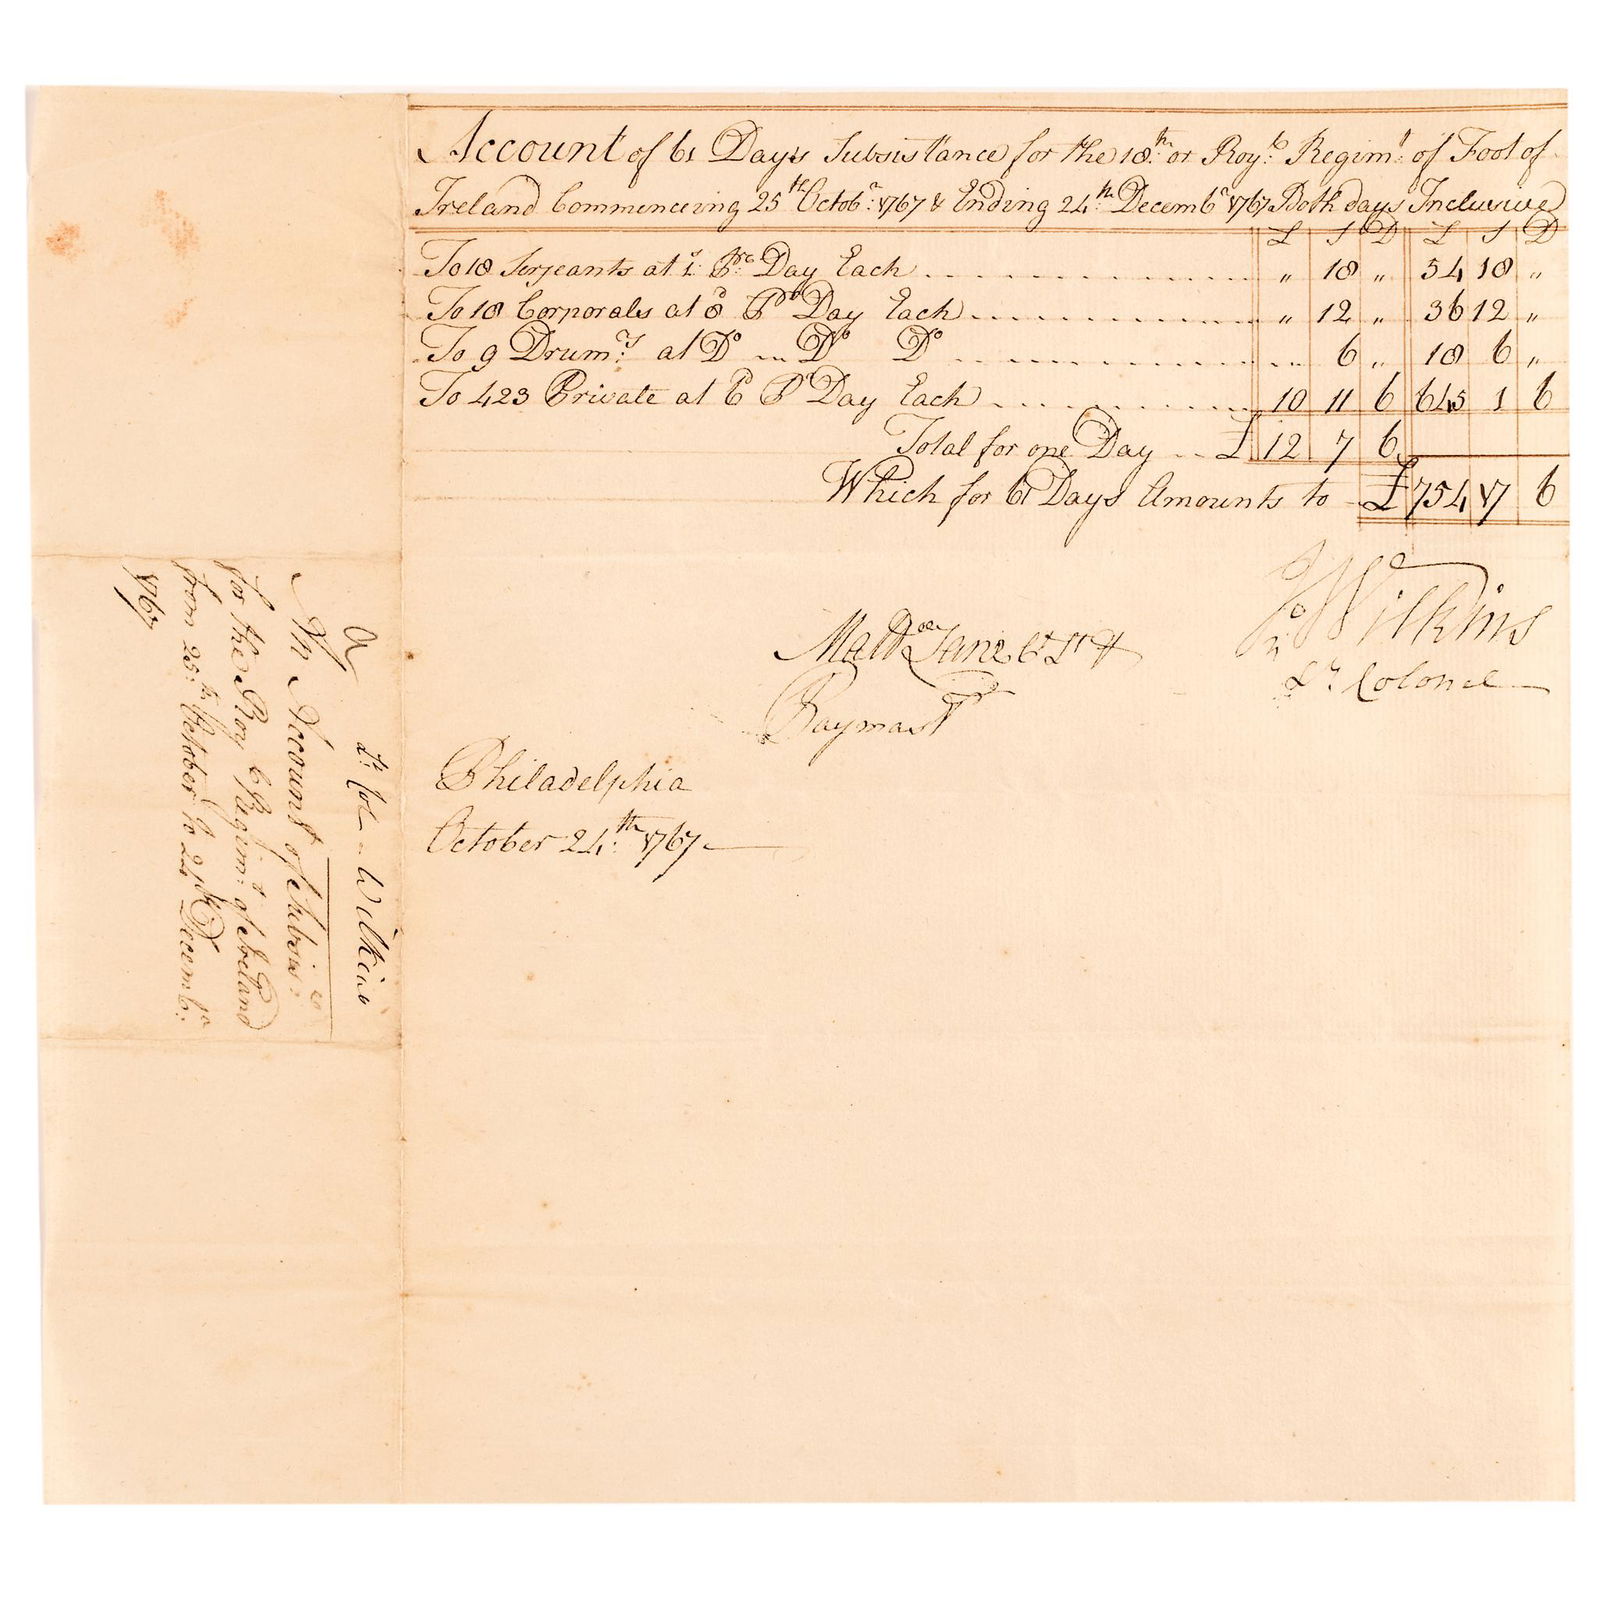 Account of 61 Days Subsistance for the 18.th or Roy.l Regim.t of Foot of
Ireland Commenceing 25.th Octob.r 1767 & Ending 24.th Decemb.r 1767 Both days Inclusive
£ S D £ S D
To 18 Serjeants at 1.s Day Each ... " 18 " 54 18 "
To 18 Corporals at 8.d Pr Day Each ... " 12 " 36 12 "
To 9 Drum.rs at Do ... Do Do ... 6 " 18 6 "
To 423 Private at 6d Pr Day Each ... 10 11 6 645 1 6
Total for one Day .. £ 12 7 6
Which for 61 Days Amounts to £ 754 17 6
Jno Wilkins
Lt. Colonel
Lane
Paymastr
Philadelphia
October 24.th 1767
Lt. Col. Wilkins
An Account of Subsis:ce
for the Roy.l Regim.t of Ireland
from 25.th October to 24th Decemb.r
1767